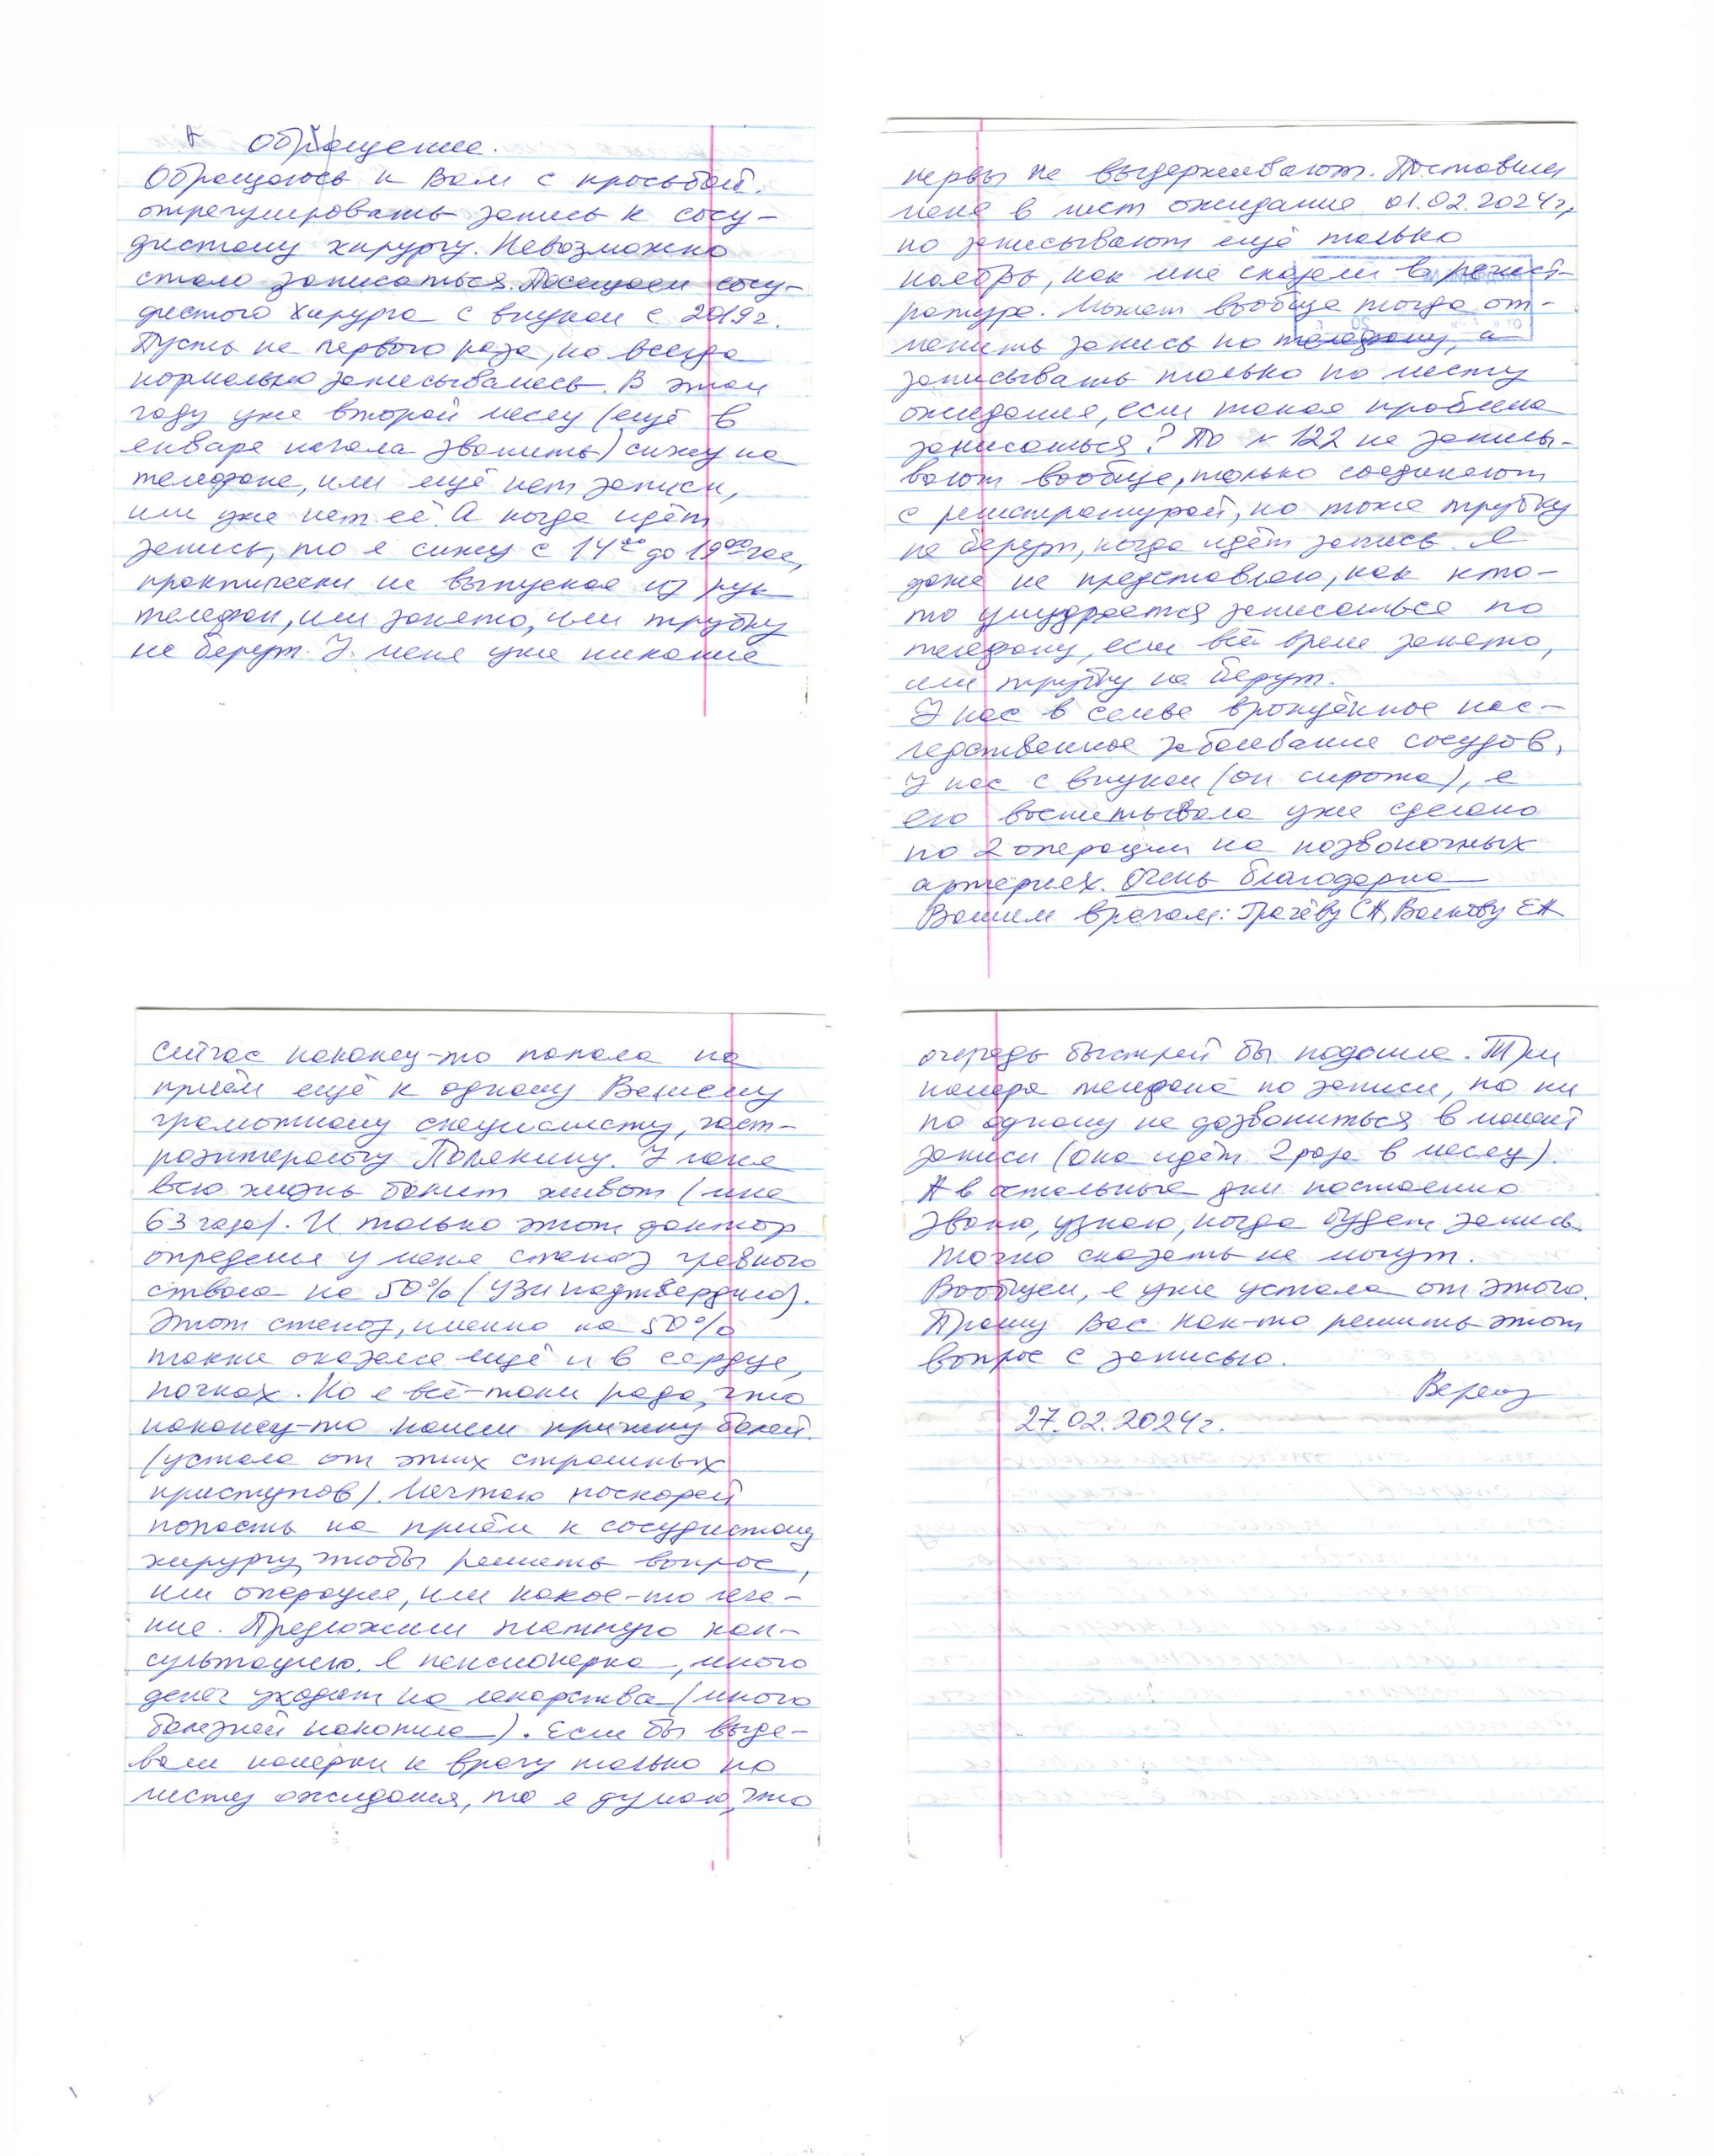 Обращение.
Обращаюсь к Вам с просьбой.
отрегулировать запись к сосу-
дистому хирургу. Невозможно
стало записаться. Посещаем сосу-
дистого хирурга с внуком с 2019г.
Пусть не первого раза, но всегда
нормально записывались. В этом
году уже второй месяц (ещё в
январе начала звонить) сижу на
телефоне, или ещё нет записи,
или уже нет её. А когда идёт
запись, то я сижу с 14⁰⁰ до 19⁰⁰час,
практически не выпуская из рук
телефон, или занято, или трубку
не берут. У меня уже никакие
нервы не выдерживают. Поставили
меня в лист ожидания 01.02.2024г,
но записывают ещё только
ноябрь, как мне сказали в регист-
ратуре. Может вообще тогда от-
менить запись по телефону, а
записывать только по листу
ожидания, если такая проблема
записаться? По н 122 не записы-
вают вообще, только соединяют
с регистратурой, но тоже трубку
не берут, когда идёт запись. Я
даже не представляю, как кто-
то умудряется записаться по
телефону, если всё время занято,
или трубку не берут.
У нас в семье врождённое нас-
ледственное заболевание сосудов,
У нас с внуком (он сирота), я
его воспитывала уже сделано
по 2 операции на позвоночных
артериях. Очень благодарна
Вашим врачам: Грачёву СА, Волкову ЕА
Сейчас наконец-то попала на
приём ещё к одному Вашему
грамотному специалисту, гаст-
роэнтерологу Полякину. У меня
всю жизнь болит живот (мне
63 года). И только этот доктор
определил у меня стеноз чревного
ствола на 50% (УЗИ подтвердило).
Этот стеноз, именно на 50%
также оказался ещё и в сердце,
почках. Но я всё-таки рада, что
наконец-то нашли причину болей.
(устала от этих страшных
приступов). Мечтаю поскорей
попасть на приём к сосудистому
хирургу, чтобы решить вопрос,
или операция, или какое-то лече-
ние. Предложили платную кон-
сультацию. Я пенсионерка, много
денег уходит на лекарства (много
болезней накопила). Если бы выда-
вали номерки к врачу только по
листу ожидания, то я думаю, что
очередь быстрей бы подошла. Три
номера телефона по записи, но ни
по одному не дозвониться в момент
записи (она идёт 2 раза в месяц).
А в остальные дни постоянно
звоню, узнаю, когда будет запись
точно сказать не могут.
Вообщем, я уже устала от этого.
Прошу Вас как-то решить этот
вопрос с записью.
27.02.2024г.